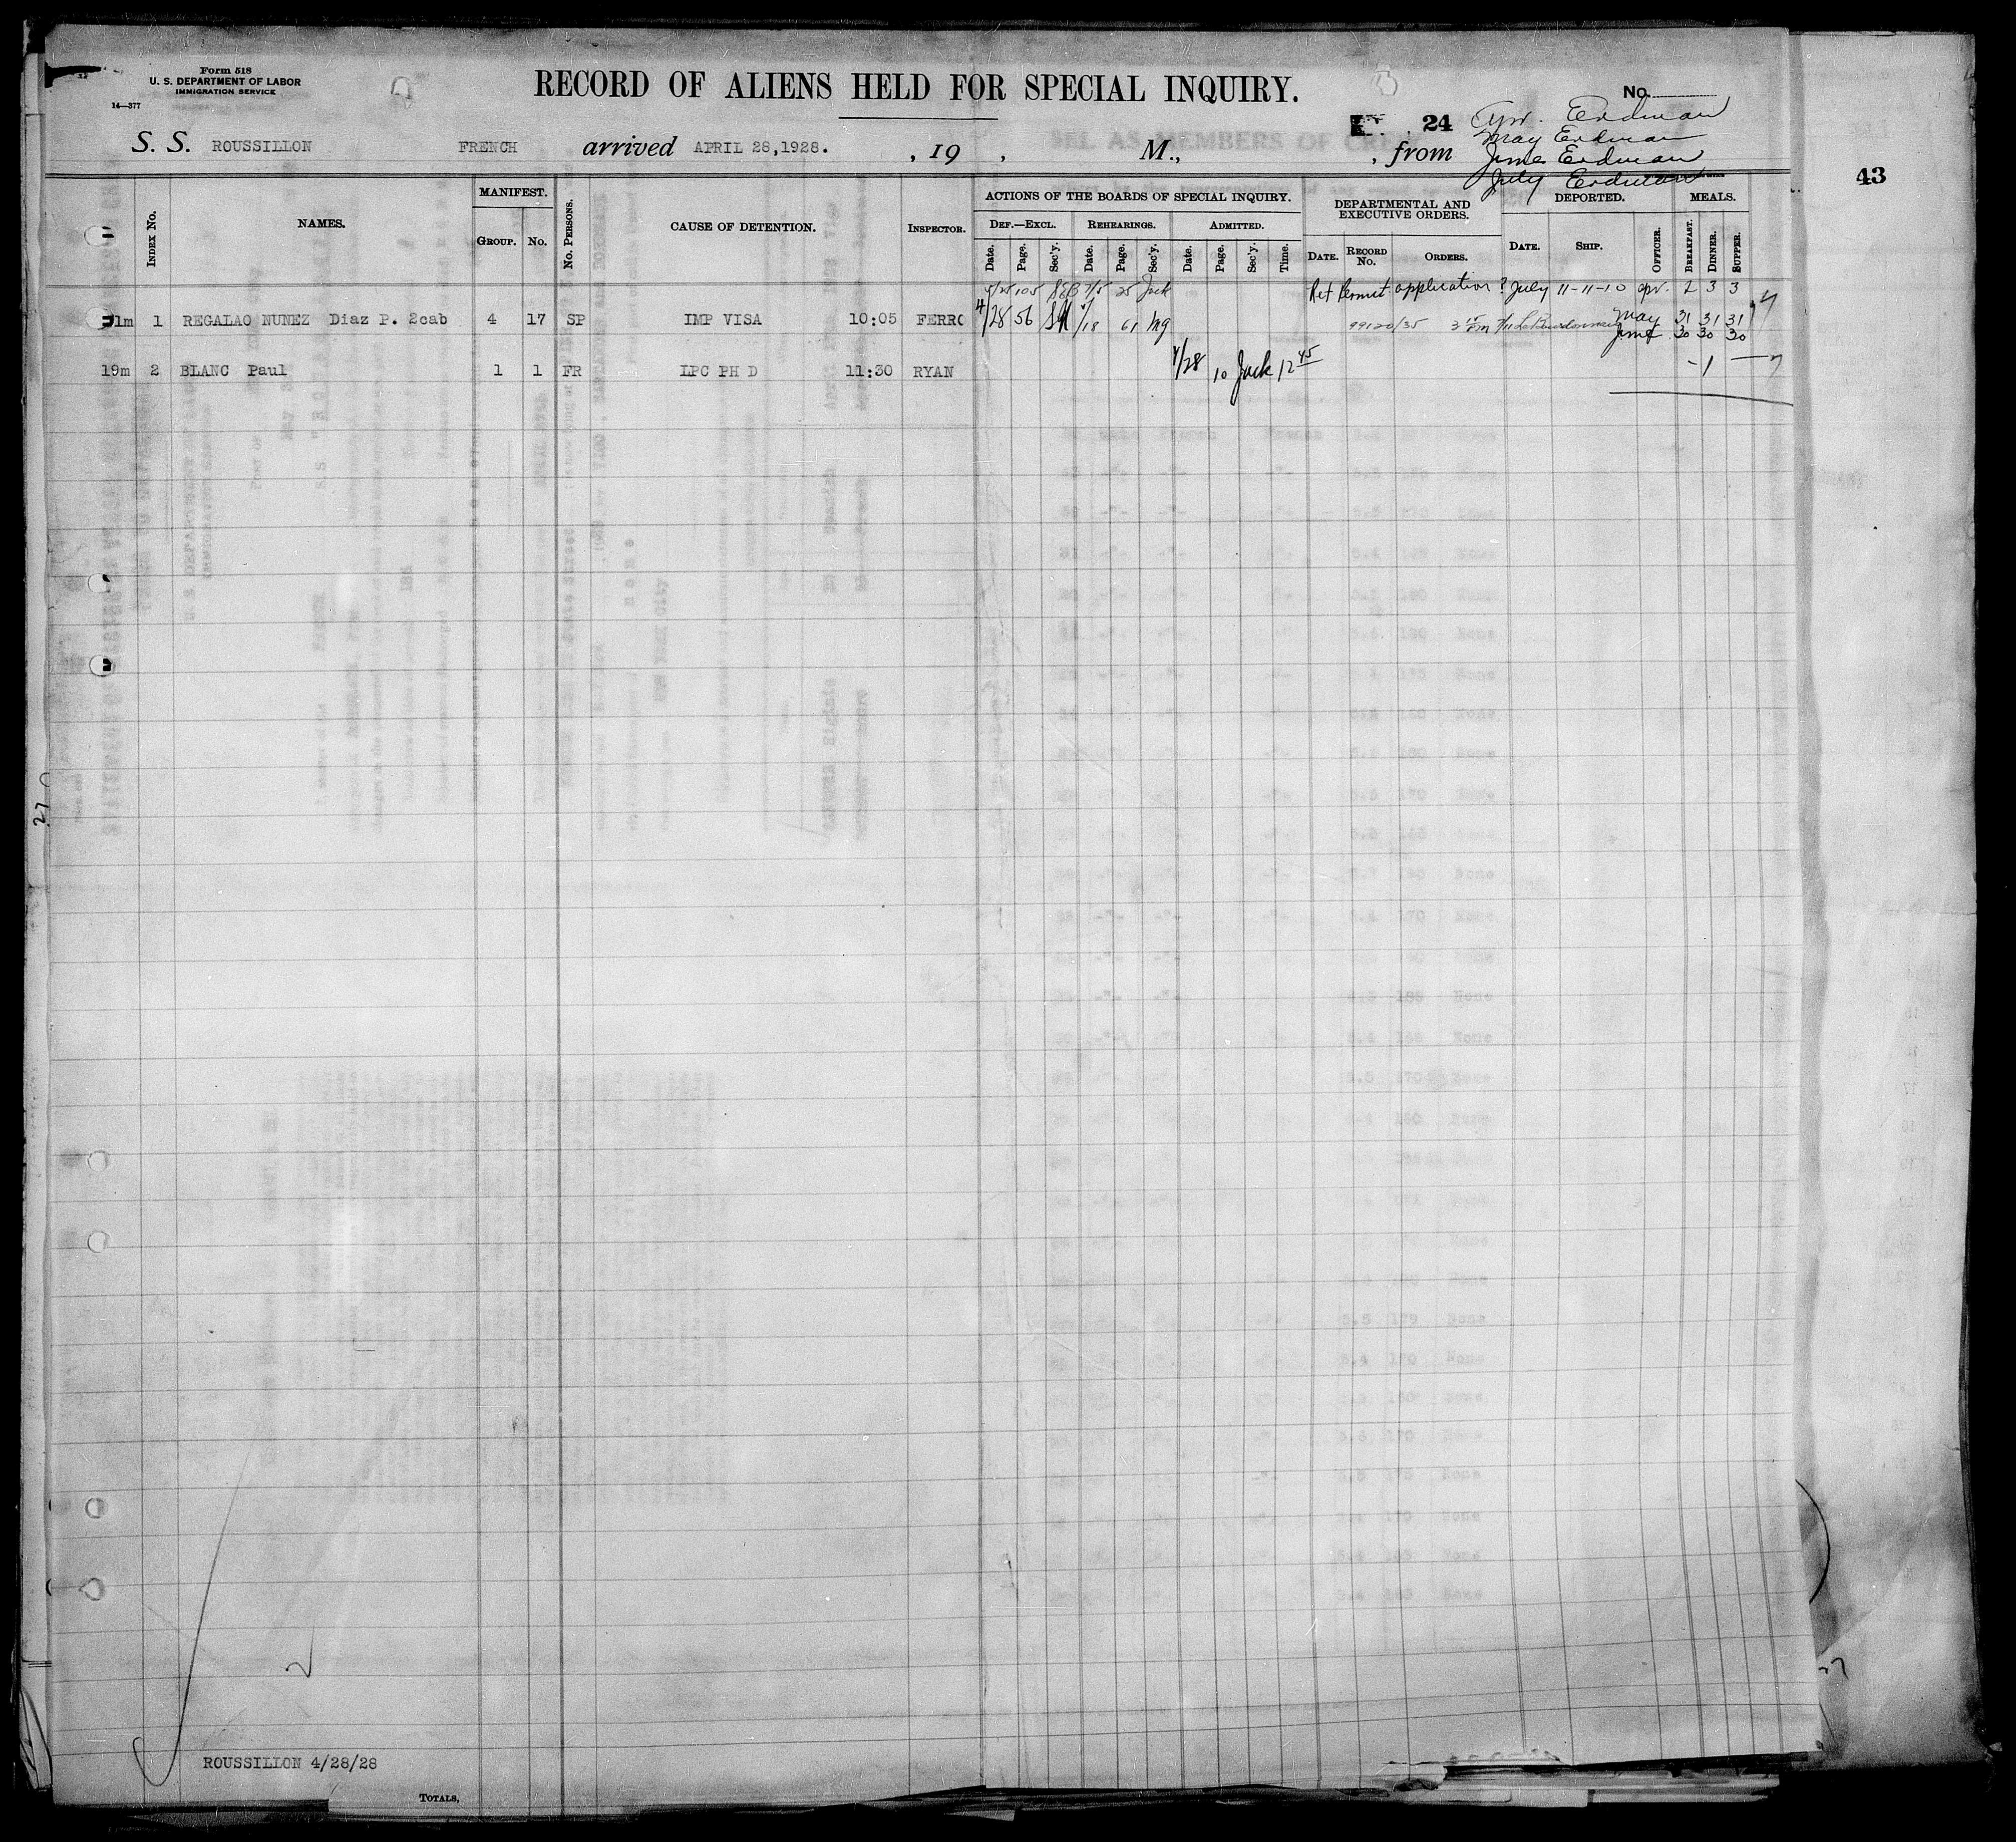 Form 518
U. S. DEPARTMENT OF LABOR
IMMIGRATION SERVICE
14—377
RECORD OF ALIENS HELD FOR SPECIAL INQUIRY.
No.
24
Apr. Erdman
May Erdman
June Erdman
July Erdman
S. S. ROUSSILLON FRENCH arrived APRIL 28,1928. , 19 , M., , from
43
Index No. NAMES. MANIFEST. Group. No. No. Persons. CAUSE OF DETENTION. Inspector.
ACTIONS OF THE BOARDS OF SPECIAL INQUIRY.
Def.—Excl. Rehearings. Admitted.
Date. Page. Sec'y. Date. Page. Sec'y. Date. Page. Sec'y. Time.
DEPARTMENTAL AND EXECUTIVE ORDERS.
Date. Record No. Orders.
DEPORTED.
Date. Ship. Officer.
MEALS.
Breakfast. Dinner. Supper.
105 SEB 7/5 25 Jack Ret Permit application ? July 11-11-10 apr. 2 3 3
1m 1 REGALAO NUNEZ Diaz P. 2cab 4 17 SP IMP VISA 10:05 FERRO 4/28 56 7/18 61 99120/35 7/11 May 31 31 31
June 30 30 30
19m 2 BLANC Paul 1 1 FR LPC PH D 11:30 RYAN 4/28 10 Jack 12 45 - 1 —
27
ROUSSILLON 4/28/28
Totals,